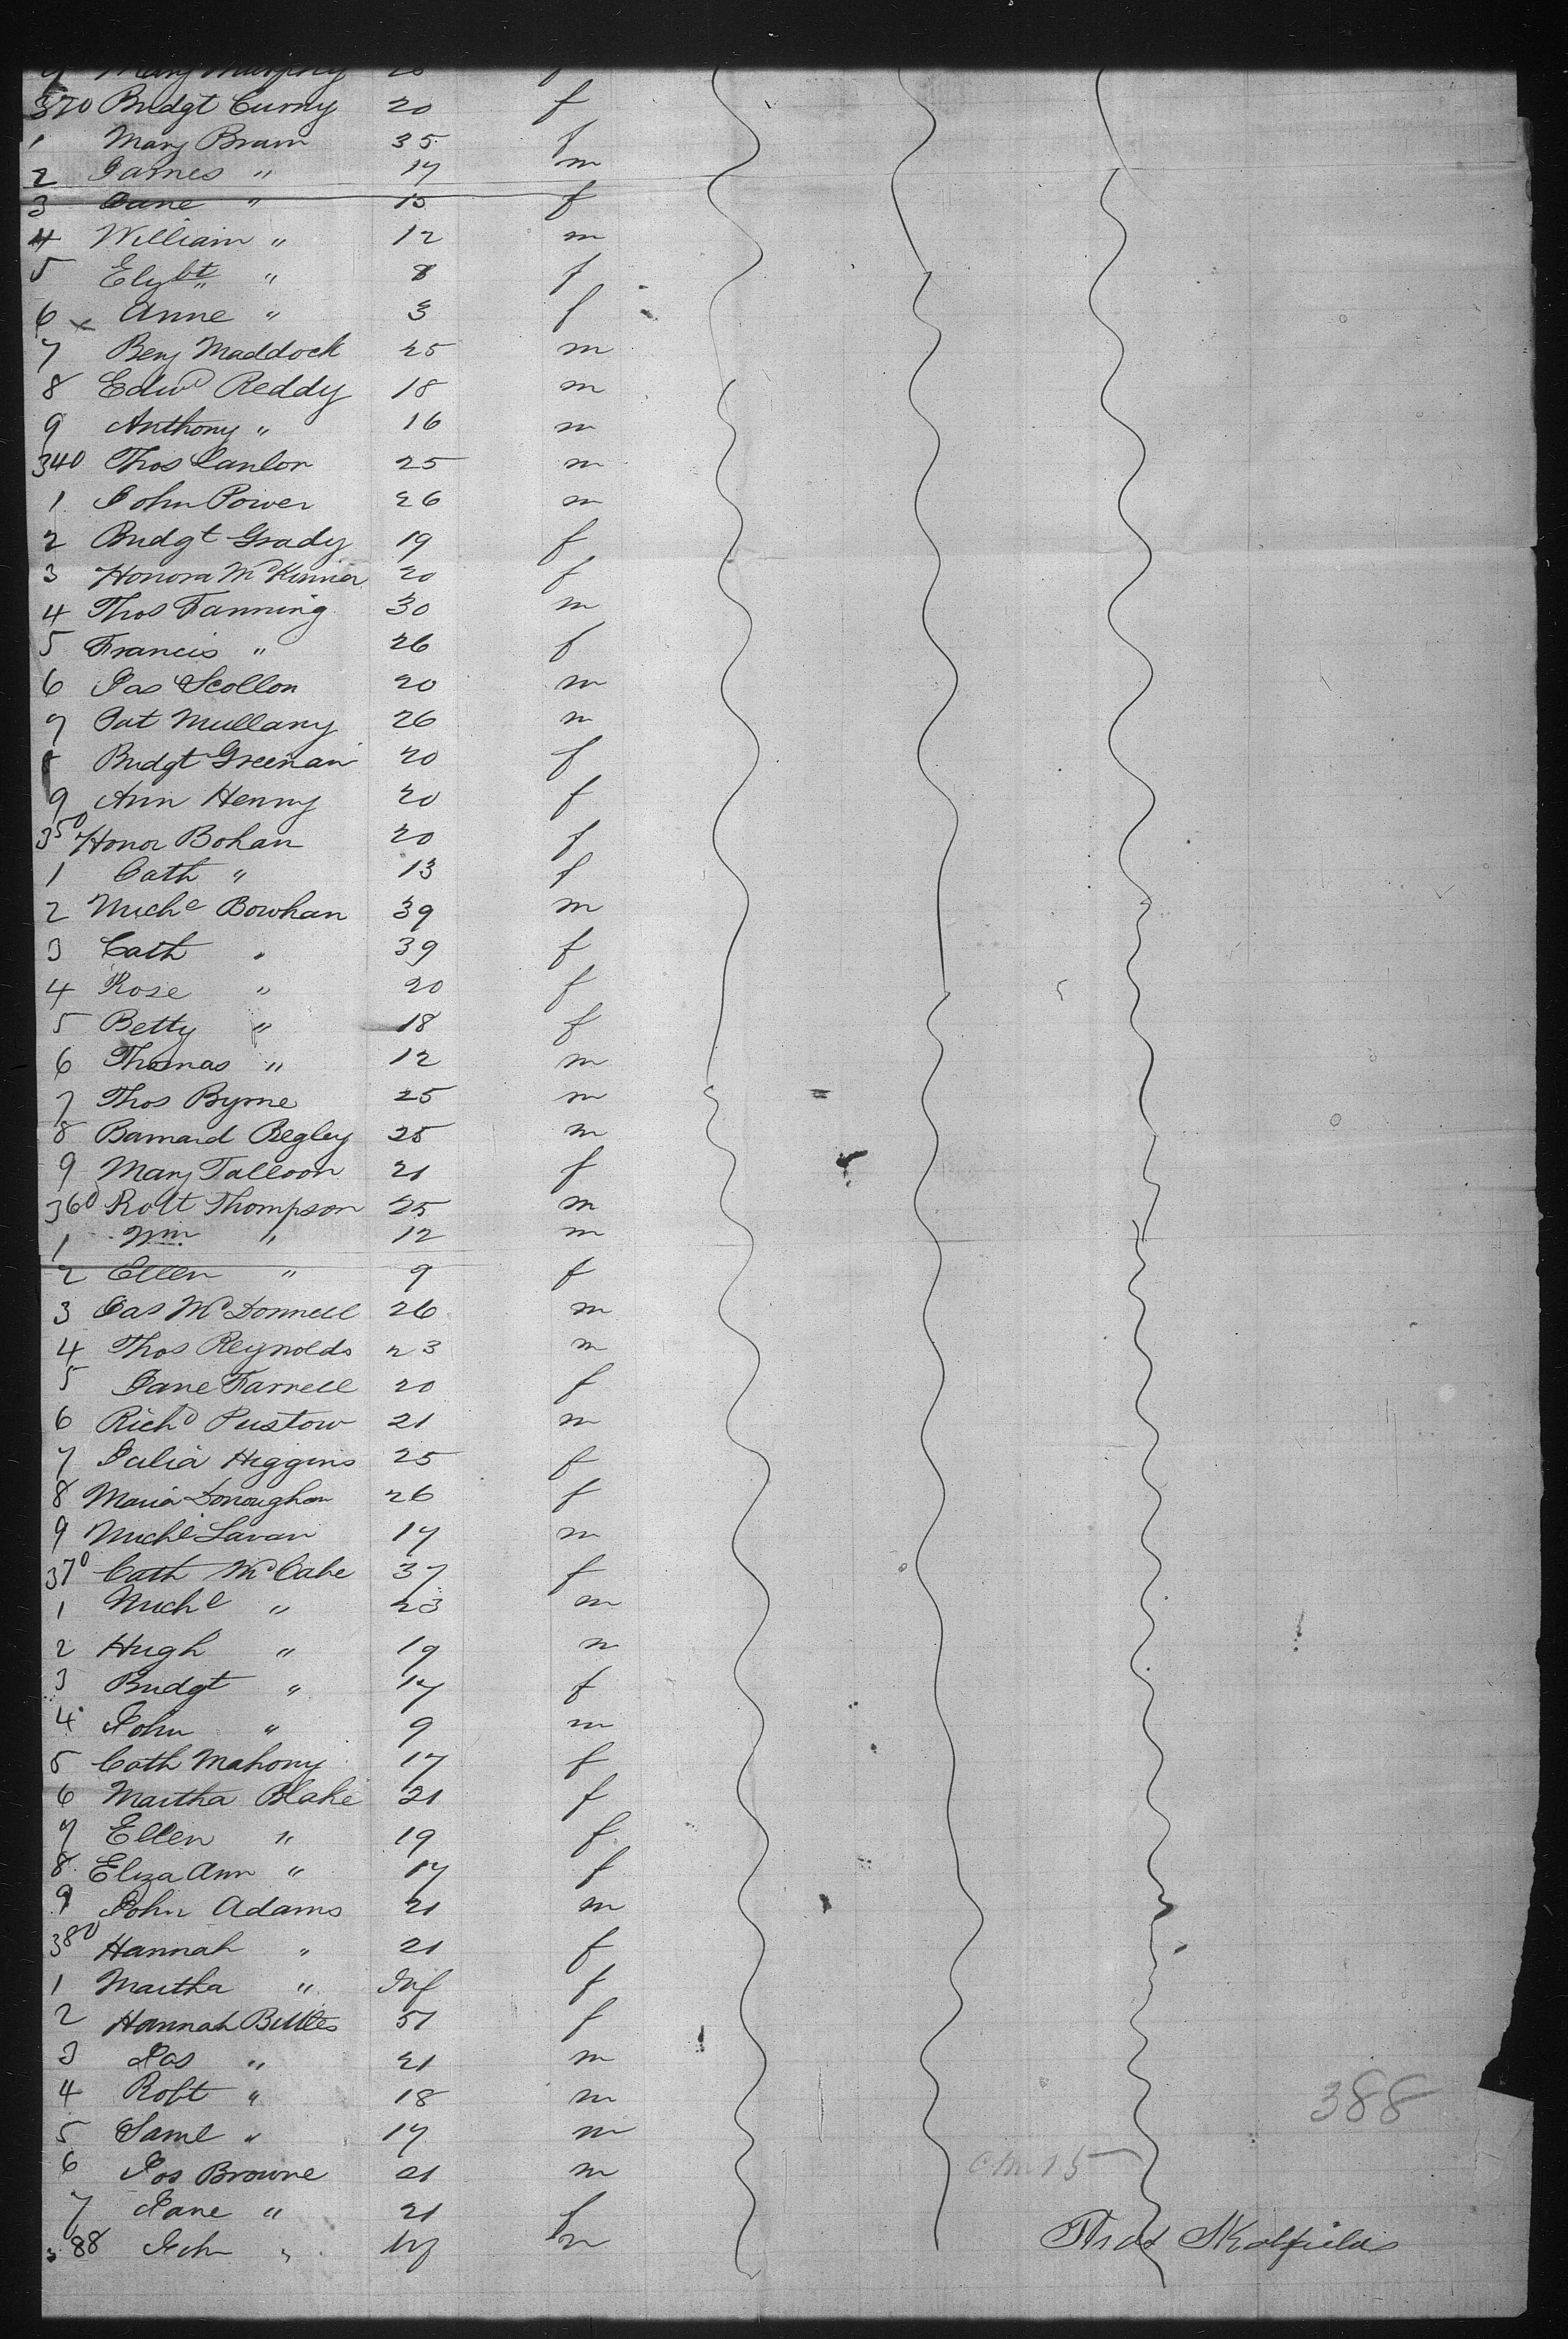 9 Mary Murphy 20 f
330 Bridgt Curry 20 f
1 Mary Brawn 35 f
2 James " 17 m
3 Jane " 15 f
4 William " 12 m
5 Elybt " 8 f
6 x Anne " 3 f
7 Benj Maddock 25 m
8 Edwd Reddy 18 m
9 Anthony " 16 m
340 Thos Canlon 25 m
1 John Power 26 m
2 Bridgt Grady 19 f
3 Honora McKinnier 20 f
4 Thos Fanning 30 m
5 Francis " 26 f
6 Jas Scollon 20 m
7 Pat Mullany 26 m
8 Bridgt Greenan 20 f
9 Ann Henny 20 f
350 Honor Bohan 20 f
1 Cath " 13 f
2 Michl Bowhan 39 m
3 Cath " 39 f
4 Rose " 20 f
5 Betty " 18 f
6 Thomas " 12 m
7 Thos Byrne 25 m
8 Barnard Begley 25 m
9 Mary Talloon 21 f
360 Robt Thompson 25 m
1 Wm " 12 m
2 Ellen " 9 f
3 Jas McDonnell 26 m
4 Thos Reynolds 23 m
5 Jane Farrell 20 f
6 Richd Pustow 21 m
7 Julia Higgins 25 f
8 Maria Donoughon 26 f
9 Michl Lavan 17 m
370 Cath McCabe 37 f
1 Michl " 23 m
2 Hugh " 19 m
3 Bridgt " 17 f
4 John " 9 m
5 Cath Mahony 17 f
6 Martha Blake 21 f
7 Ellen " 19 f
8 Eliza Ann " 17 f
9 John Adams 21 m
380 Hannah " 21 f
1 Martha " Inf f
2 Hannah Bittles 51 f
3 Jas " 21 m
4 Robt " 18 m
5 Saml " 17 m
388
6 Jos Browne 21 m
7 Jane " 21 f
388 John " Inf m
Thos Skolfield